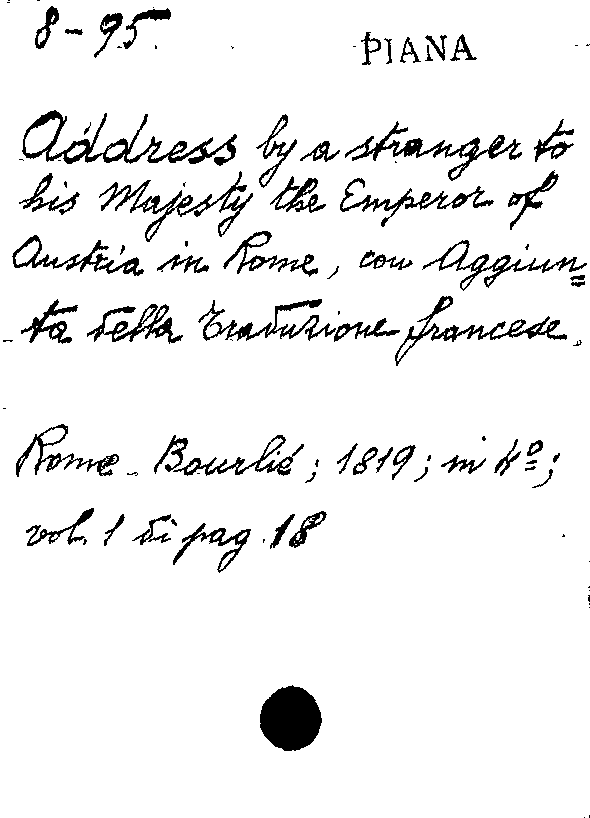 8-95.
PIANA
Address by a stranger to
his Majesty the Emperor of
Austria in Rome, con Aggiun=
ta della Traduzione francese.
Rome - Bourlié; 1819; in 4º;
vol. 1 di pag. 18